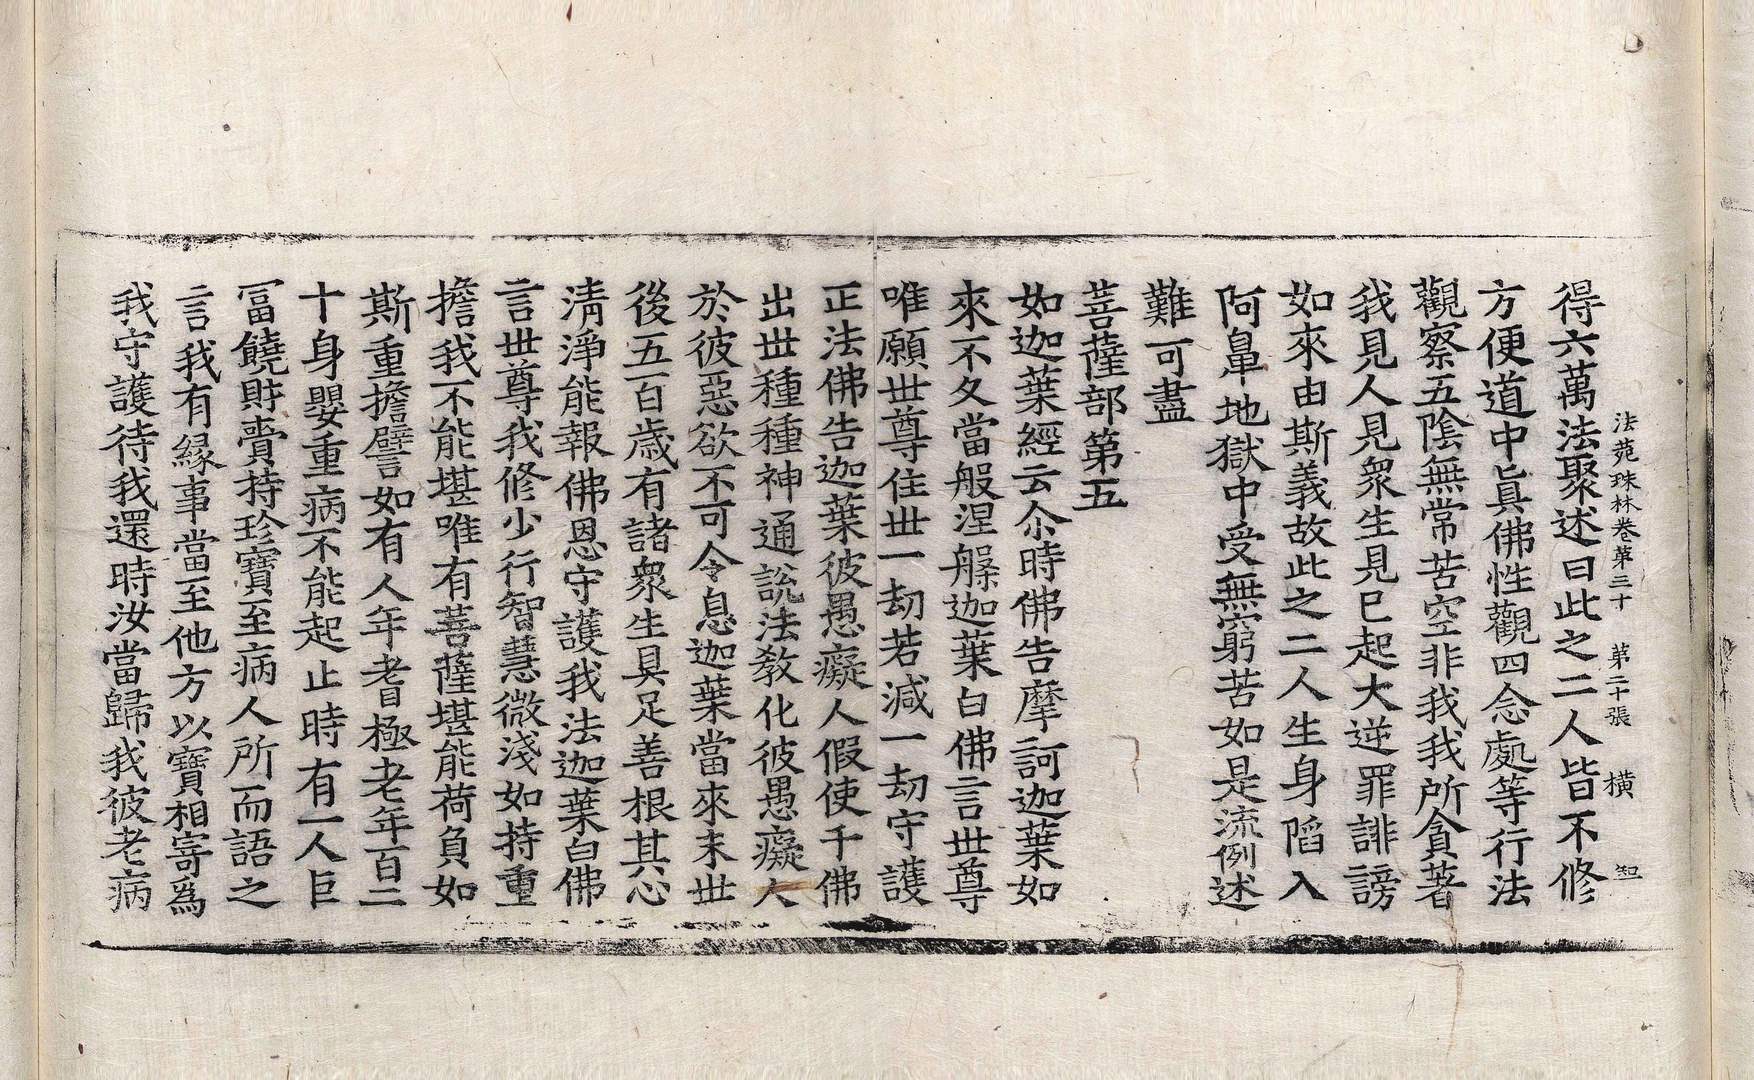 法苑珠林卷第三十　第二十張　橫
得六萬法聚述曰此之二人皆不修
方便道中眞佛性觀四念處等行法
觀察五陰無常苦空非我我所貪著
我見人見衆生見已起大逆罪誹謗
如來由斯義故此之二人生身陷入
阿鼻地獄中受無窮苦如是流例述
難可盡
菩薩部第五
如迦葉經云尒時佛告摩訶迦葉如
來不久當般涅槃迦葉白佛言世尊
唯願世尊住世一劫若減一劫守護
正法佛告迦葉彼愚癡人假使千佛
出世種種神通說法教化彼愚癡人
於彼惡欲不可令息迦葉當來末世
後五百歲有諸衆生具足善根其心
清淨能報佛恩守護我法迦葉白佛
言世尊我修少行智慧微淺如持重
擔我不能堪唯有菩薩堪能荷負如
斯重擔譬如有人年耆極老年百二
十身嬰重病不能起止時有一人巨
冨饒財賷持珍寶至病人所而語之
言我有緣事當至他方以寶相寄爲
我守護待我還時汝當歸我彼老病